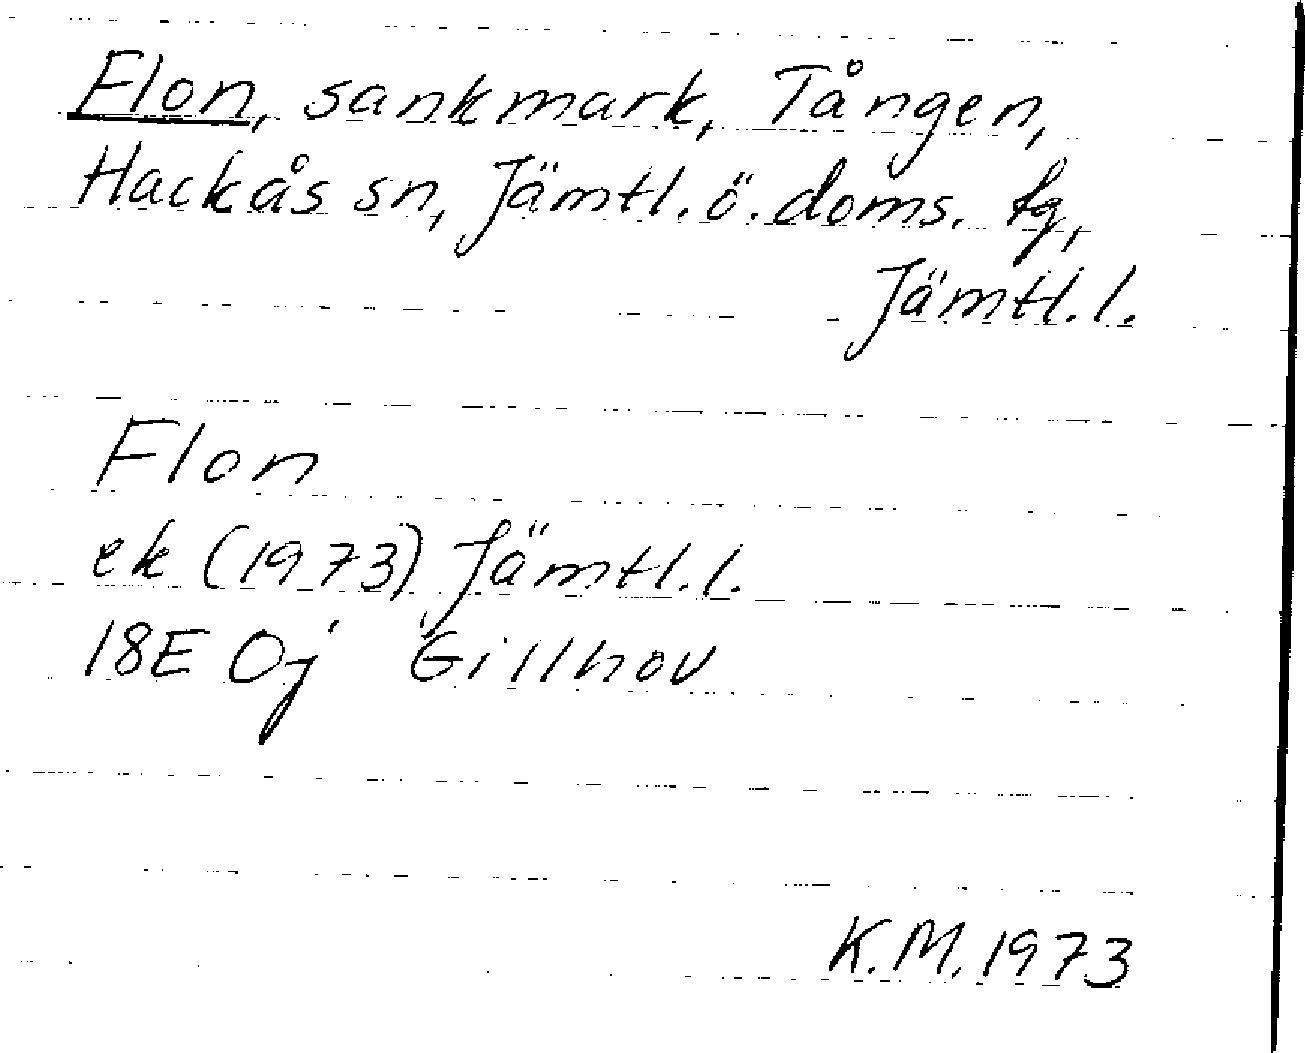 Flon, sankmark, Tången,
Hackås sn, Jämtl. ö. doms. tg,
Jämtl. l.
Flon
ek (1973) Jämtl. l.
18E 0j Gillhov
K.M. 1973